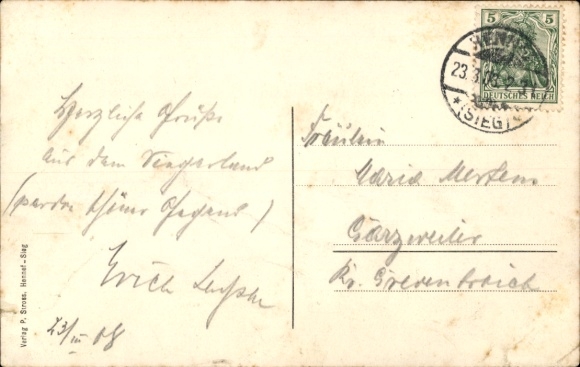 Herzliche Grüße
aus dem Siegerland
(pardon schöner Gegend)
Erich
23/III 08
Fräulein
Maria Mertens
Garzweiler
Kr. Grevenbroich
Verlag P. Stross, Hennef-Sieg
5 5
DEUTSCHES REICH
HENNEF
23.3.08
*(SIEG)*